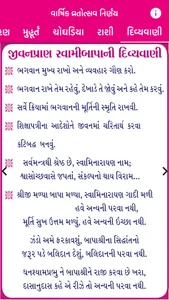 વાર્ષિક વ્રતોત્સવ નિર્ણય
રણ મુહૂર્ત ચોઘડિયા રાશી દિવ્યવાણી
જીવનપ્રાણ સ્વામીબાપાની દિવ્યવાણી
ભગવાન મુખ્ય રાખો અને વ્યવહાર ગૌણ કરો.
ભગવાન રાખે તેમ રહેવું, દેખાડે તે જોવું અને કહે તેમ કરવું.
સર્વે ક્રિયામાં ભગવાનની મૂર્તિની સ્મૃતિ રાખવી.
શિક્ષાપત્રીના આદેશોને જીવનમાં ચરિતાર્થ કરવા
કટિબદ્ધ બનવું.
સર્વમંત્રથી શ્રેષ્ઠ છે, સ્વામિનારાયણ નામ;
શ્વાસોચ્છવાસે જપતાં, સંકલ્પનો થાય વિરામ...
શ્રીજી મળ્યા બાપા મળ્યા, સ્વામિનારાયણ ગાદી મળી
હવે અન્યની પરવા નથી,
મૂર્તિ સુખ ઉત્તમ મળ્યું, હવે અન્યની ઇચ્છા નથી.
ઝંડો અમે ફરકાવશું, બાપાશ્રીના સિદ્ધાંતનો
જરૂર પડે બલિદાન દેશું, બલિદાનની પરવા નથી.
ઘનશ્યામપ્રભુ ને બાપાશ્રીને રાજી કરવા છે ખરા,
દાસાનુદાસ કહે એ રીઝે તો અન્યની પરવા નથી.